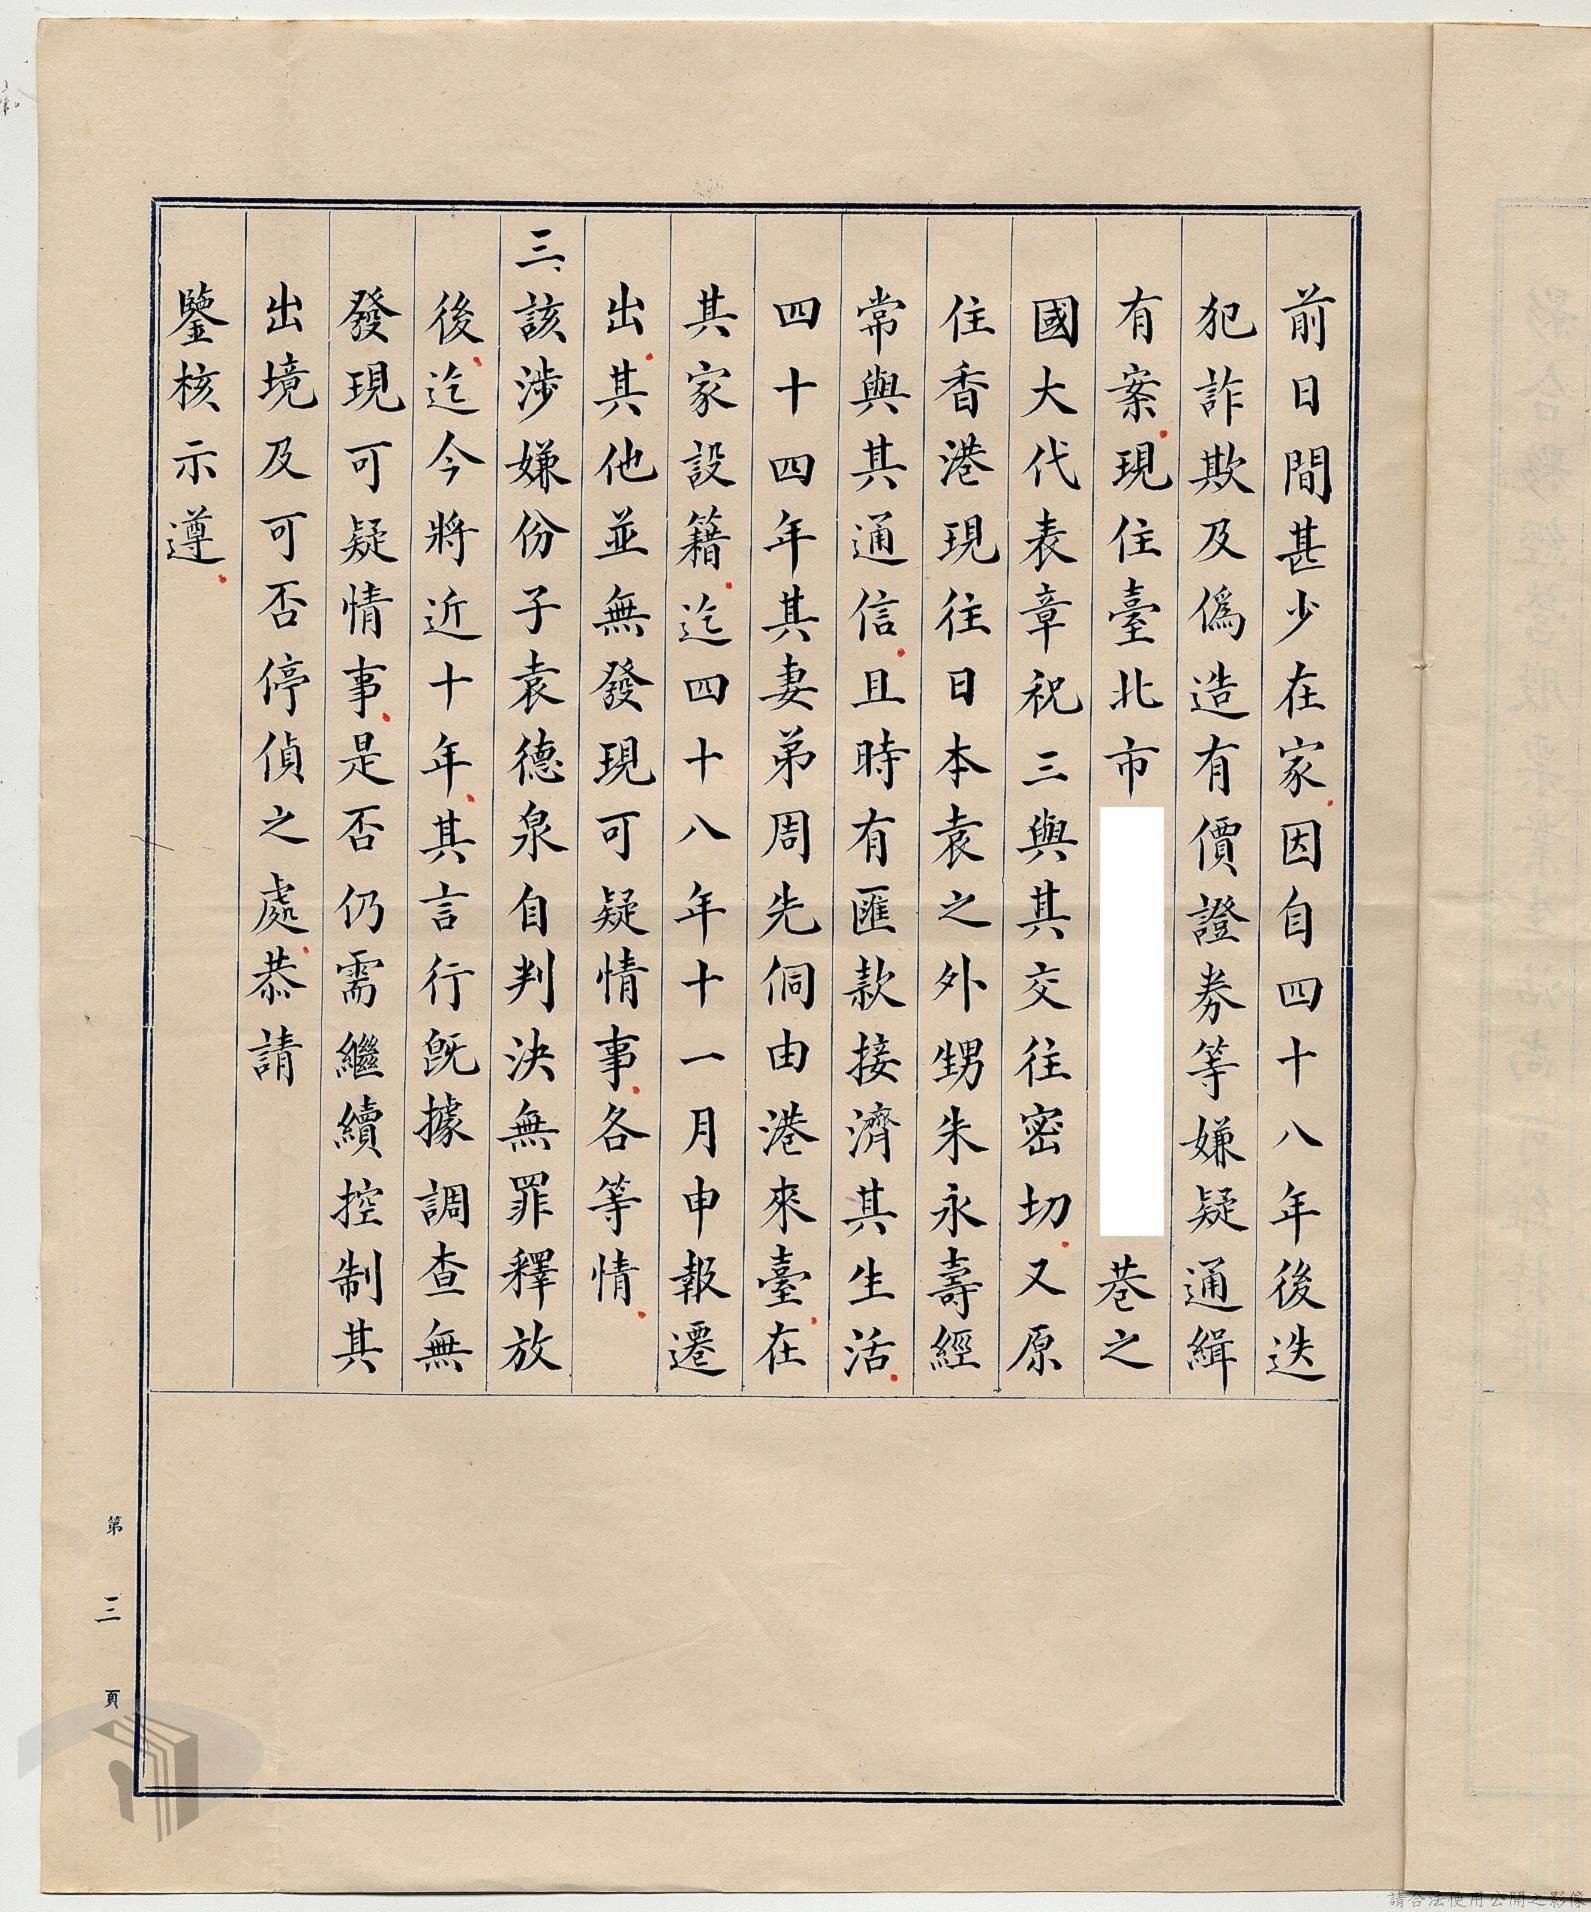 前日間甚少在家因自四十八年後迭
犯詐欺及偽造有價證券等嫌疑通緝
有案現住臺北市巷之
國大代表章祝三與其交往密切又原
住香港現往日本袁之外甥朱永壽經
常與其通信且時有匯款接濟其生活
四十四年其妻弟周先侗由港來臺在
其家設籍迄四十八年十一月申報遷
出其他並無發現可疑情事各等情
三、該涉嫌份子袁德泉自判決無罪釋放
後迄今將近十年其言行既據調查無
發現可疑情事是否仍需繼續控制其
出境及可否停偵之處恭請
鑒核示遵
第三頁
請合法使用公開之影像